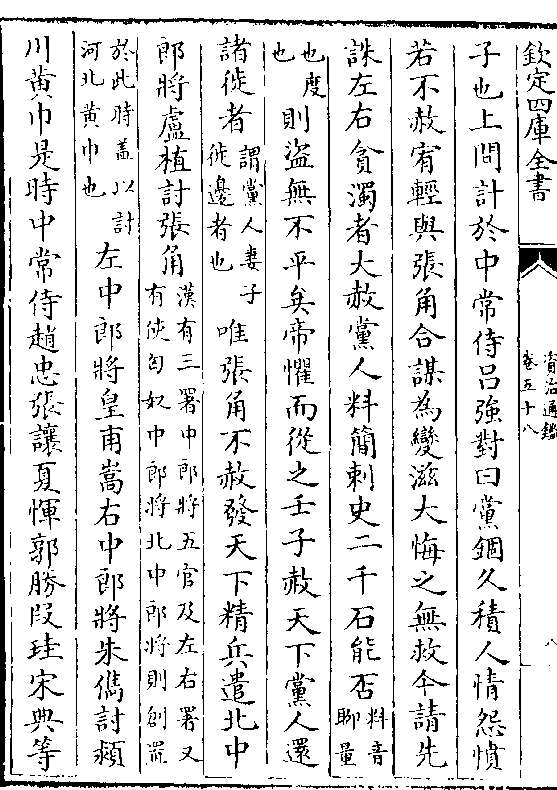 欽定四庫全書
資治通鑑
卷五十八
八
子也上問計於中常侍吕強對曰黨錮久積人情怨憤
若不赦宥輕與張角合謀為變滋大悔之無救今請先
誅左右貪濁者大赦黨人料簡刺史二千石能否料音
聊量
也度
也則盜無不平矣帝懼而從之壬子赦天下黨人還
諸徙者謂黨人妻子
徙邊者也唯張角不赦發天下精兵遣北中
郎將盧植討張角漢有三署中郎將五官及左右署又
有使匈奴中郎將北中郎將則創置
於此時盖以討
河北黄巾也左中郎將皇甫嵩右中郎將朱儁討潁
川黄巾是時中常侍趙忠張讓夏惲郭勝段珪宋典等